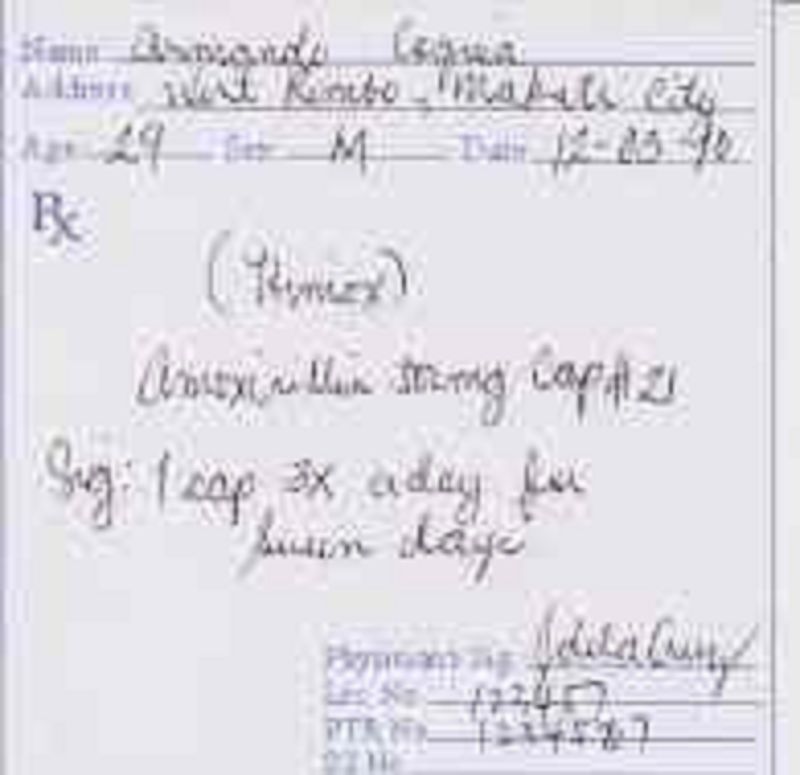 Name Armando
Address West Rembo, Makati City
Age 29 Sex M Date 12-03-90
Rx
(Himox)
Amoxicillin 500mg Cap #21
Sig: 1 cap 3x a day for
seven days
Physician's Sig.
Lic No.
PTR No. 1234567
S2 No